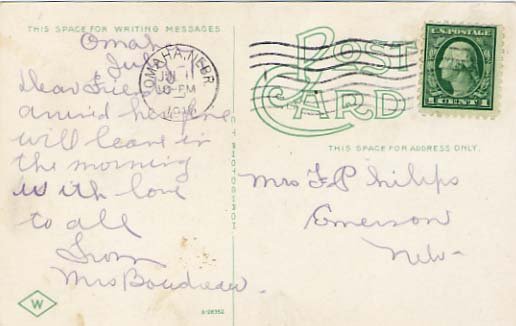 THIS SPACE FOR WRITING MESSAGES
Omah
Jul
Dear Friend
arrived here fine
will leave in
the morning
with love
to all
From
Mrs Boudreau
W
OMAHA, NEBR.
10-PM
POST CARD
U.S. POSTAGE
1 CENT 1
THIS SPACE FOR ADDRESS ONLY.
Mrs F P Philips
Emerson
Neb-